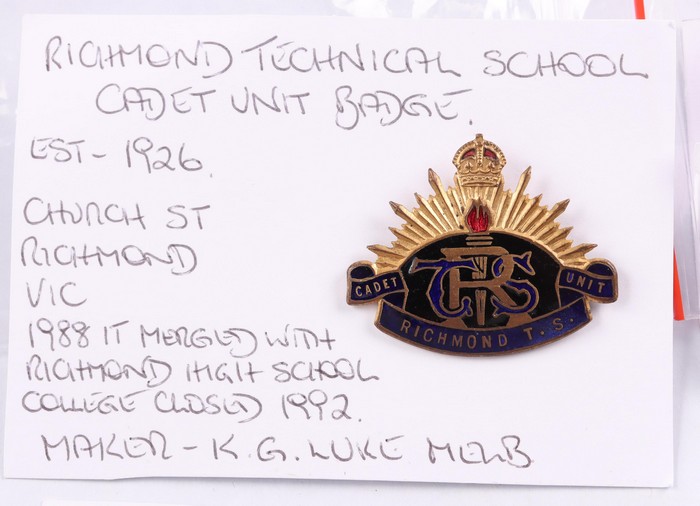 RICHMOND TECHNICAL SCHOOL
CADET UNIT BADGE.
EST - 1926.
CHURCH ST
RICHMOND
VIC
1988 IT MERGED WITH
RICHMOND HIGH SCHOOL
COLLEGE CLOSED 1992.
MAKER - K.G. LUKE MELB
TRS
CADET UNIT
RICHMOND T. S.